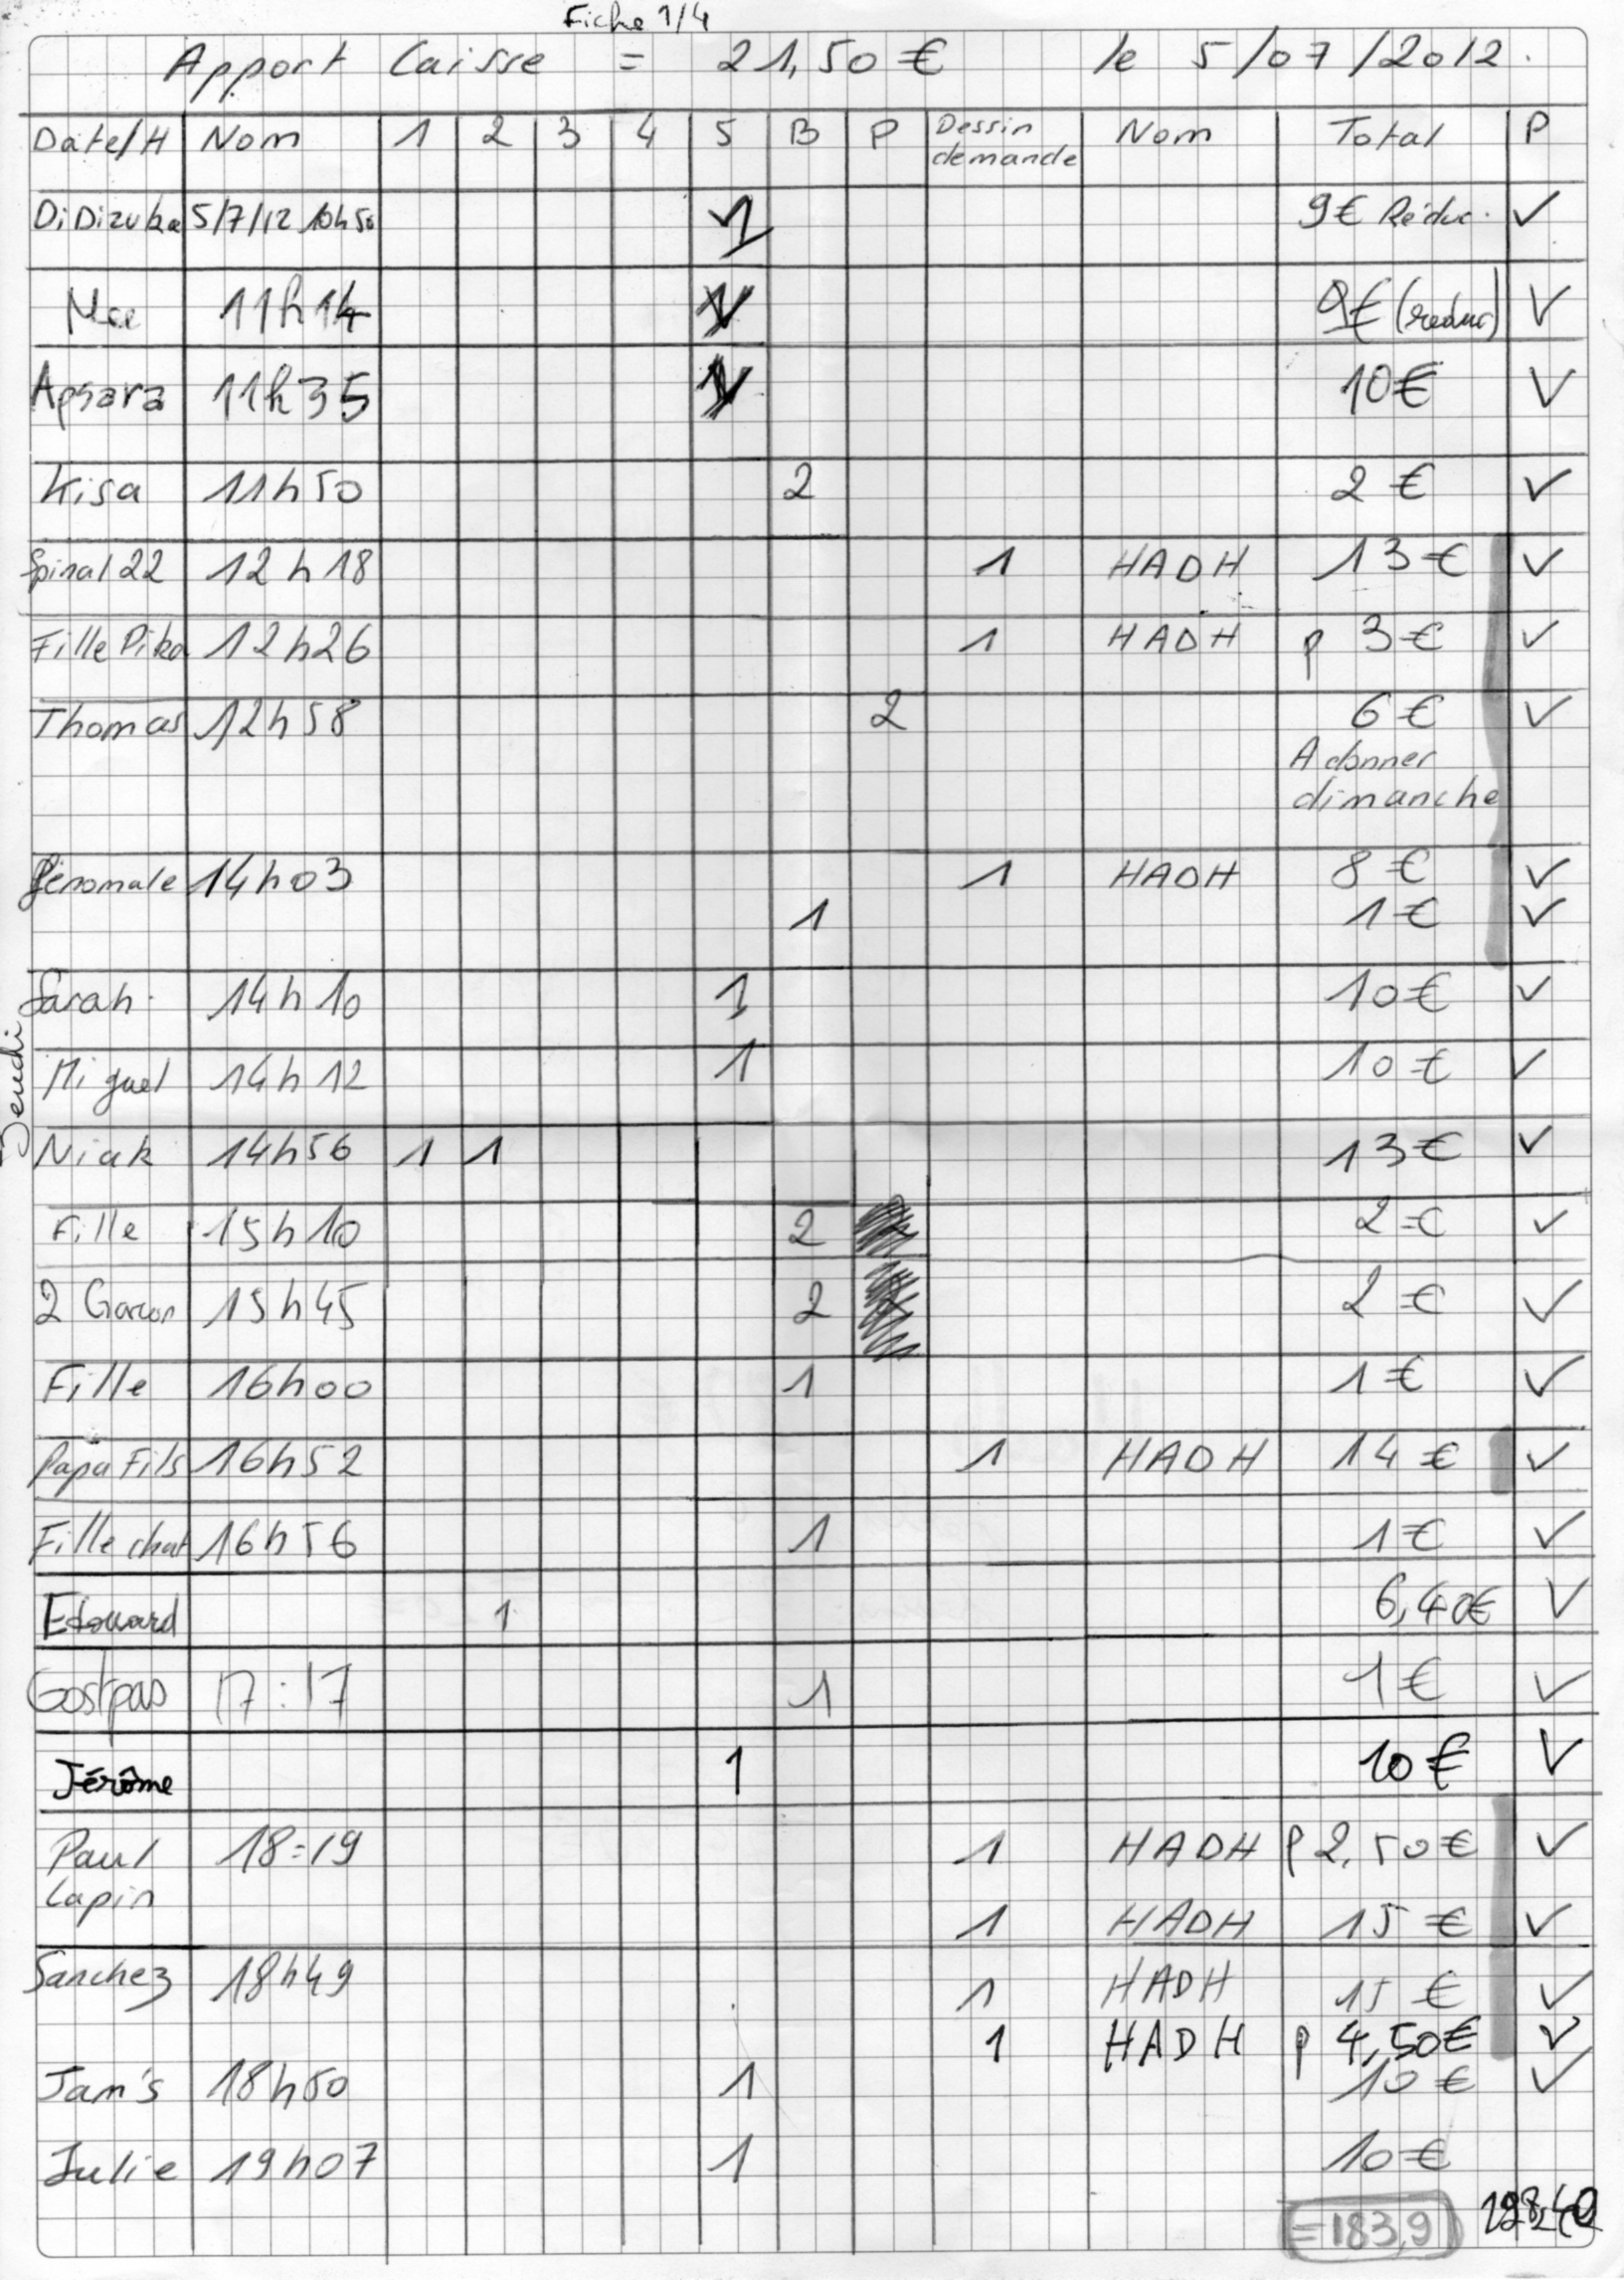 Fiche 1/4
Apport Caisse = 21,50 € le 5/07/2012.
Date/H Nom 1 2 3 4 5 B P Dessin demande Nom Total P
DiDizuka 5/7/12 10h50 1 9€ Réduc. ✓
11h14 1 9€ (reduc) ✓
Apsara 11h35 1 10€ ✓
Kisa 11h50 2 2 € ✓
Spinal22 12h18 1 HADH 13 € ✓
Fille Pika 12h26 1 HADH p 3 € ✓
Thomas 12h58 2 6 € ✓
A donner
dimanche
14h03 1 HADH 8 € ✓
1 1 € ✓
Sarah 14h10 1 10 € ✓
Miguel 14h12 1 10 € ✓
Jeudi
Niak 14h56 1 1 13 € ✓
Fille 15h10 2 2 € ✓
2 Garcon 15h45 2 2 € ✓
Fille 16h00 1 1 € ✓
Papa Fils 16h52 1 HADH 14 € ✓
Fille chat 16h56 1 1 € ✓
Edouard 1 6,40€ ✓
Gostpas 17:17 1 1 € ✓
Jérôme 1 10 € ✓
Paul 18:19 1 HADH p 2,50 € ✓
Lapin
1 HADH 15 € ✓
Sanchez 18h49 1 HADH 15 € ✓
1 HADH p 4,50€ ✓
Jam's 18h50 1 10 € ✓
Julie 19h07 1 10 €
=183,9 198,40